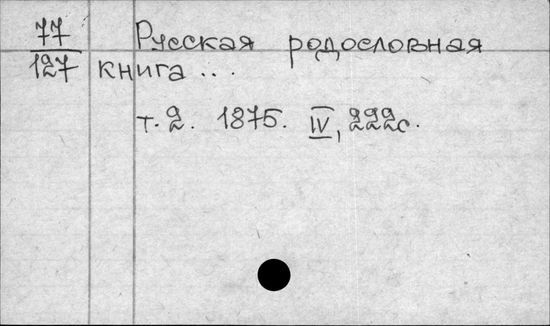 77
127
Русская родословная
книга ...
т. 2. 1875. IV, 222с.